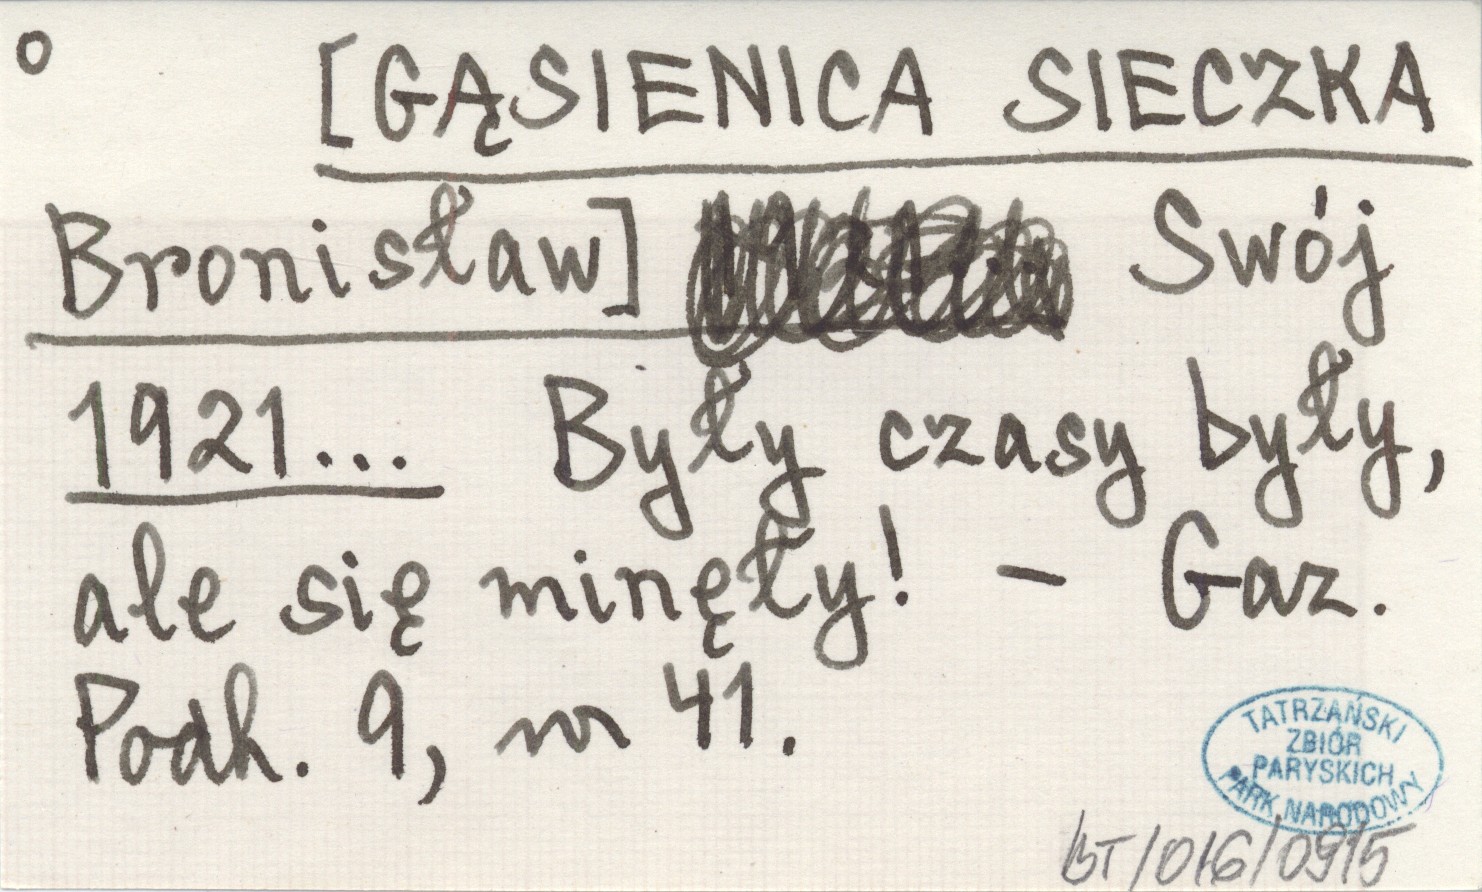 o [GĄSIENICA SIECZKA
Bronisław] Swój
1921... Były czasy były,
ale się minęły! - Gaz.
Podh. 9, nr 41.
TATRZAŃSKI
ZBIÓR
PARYSKICH
PARK NARODOWY
BT/016/0915